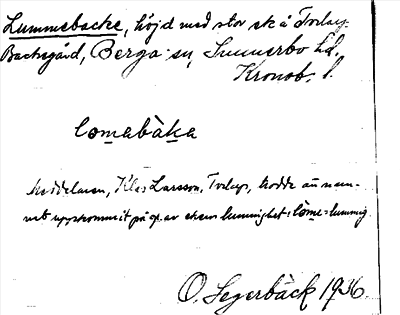 Lummebacke, höjd med stor ek å Torlarp
Backegård, Berga sn, Sunnerbo hd.
Kronob. l.
lomabàka
Meddelaren, Klas Larsson, Torlarp, trodde att nam-
net uppkommit på gr. av ekens lummighet: löme = lummig.
O. Segerbäck 1936.